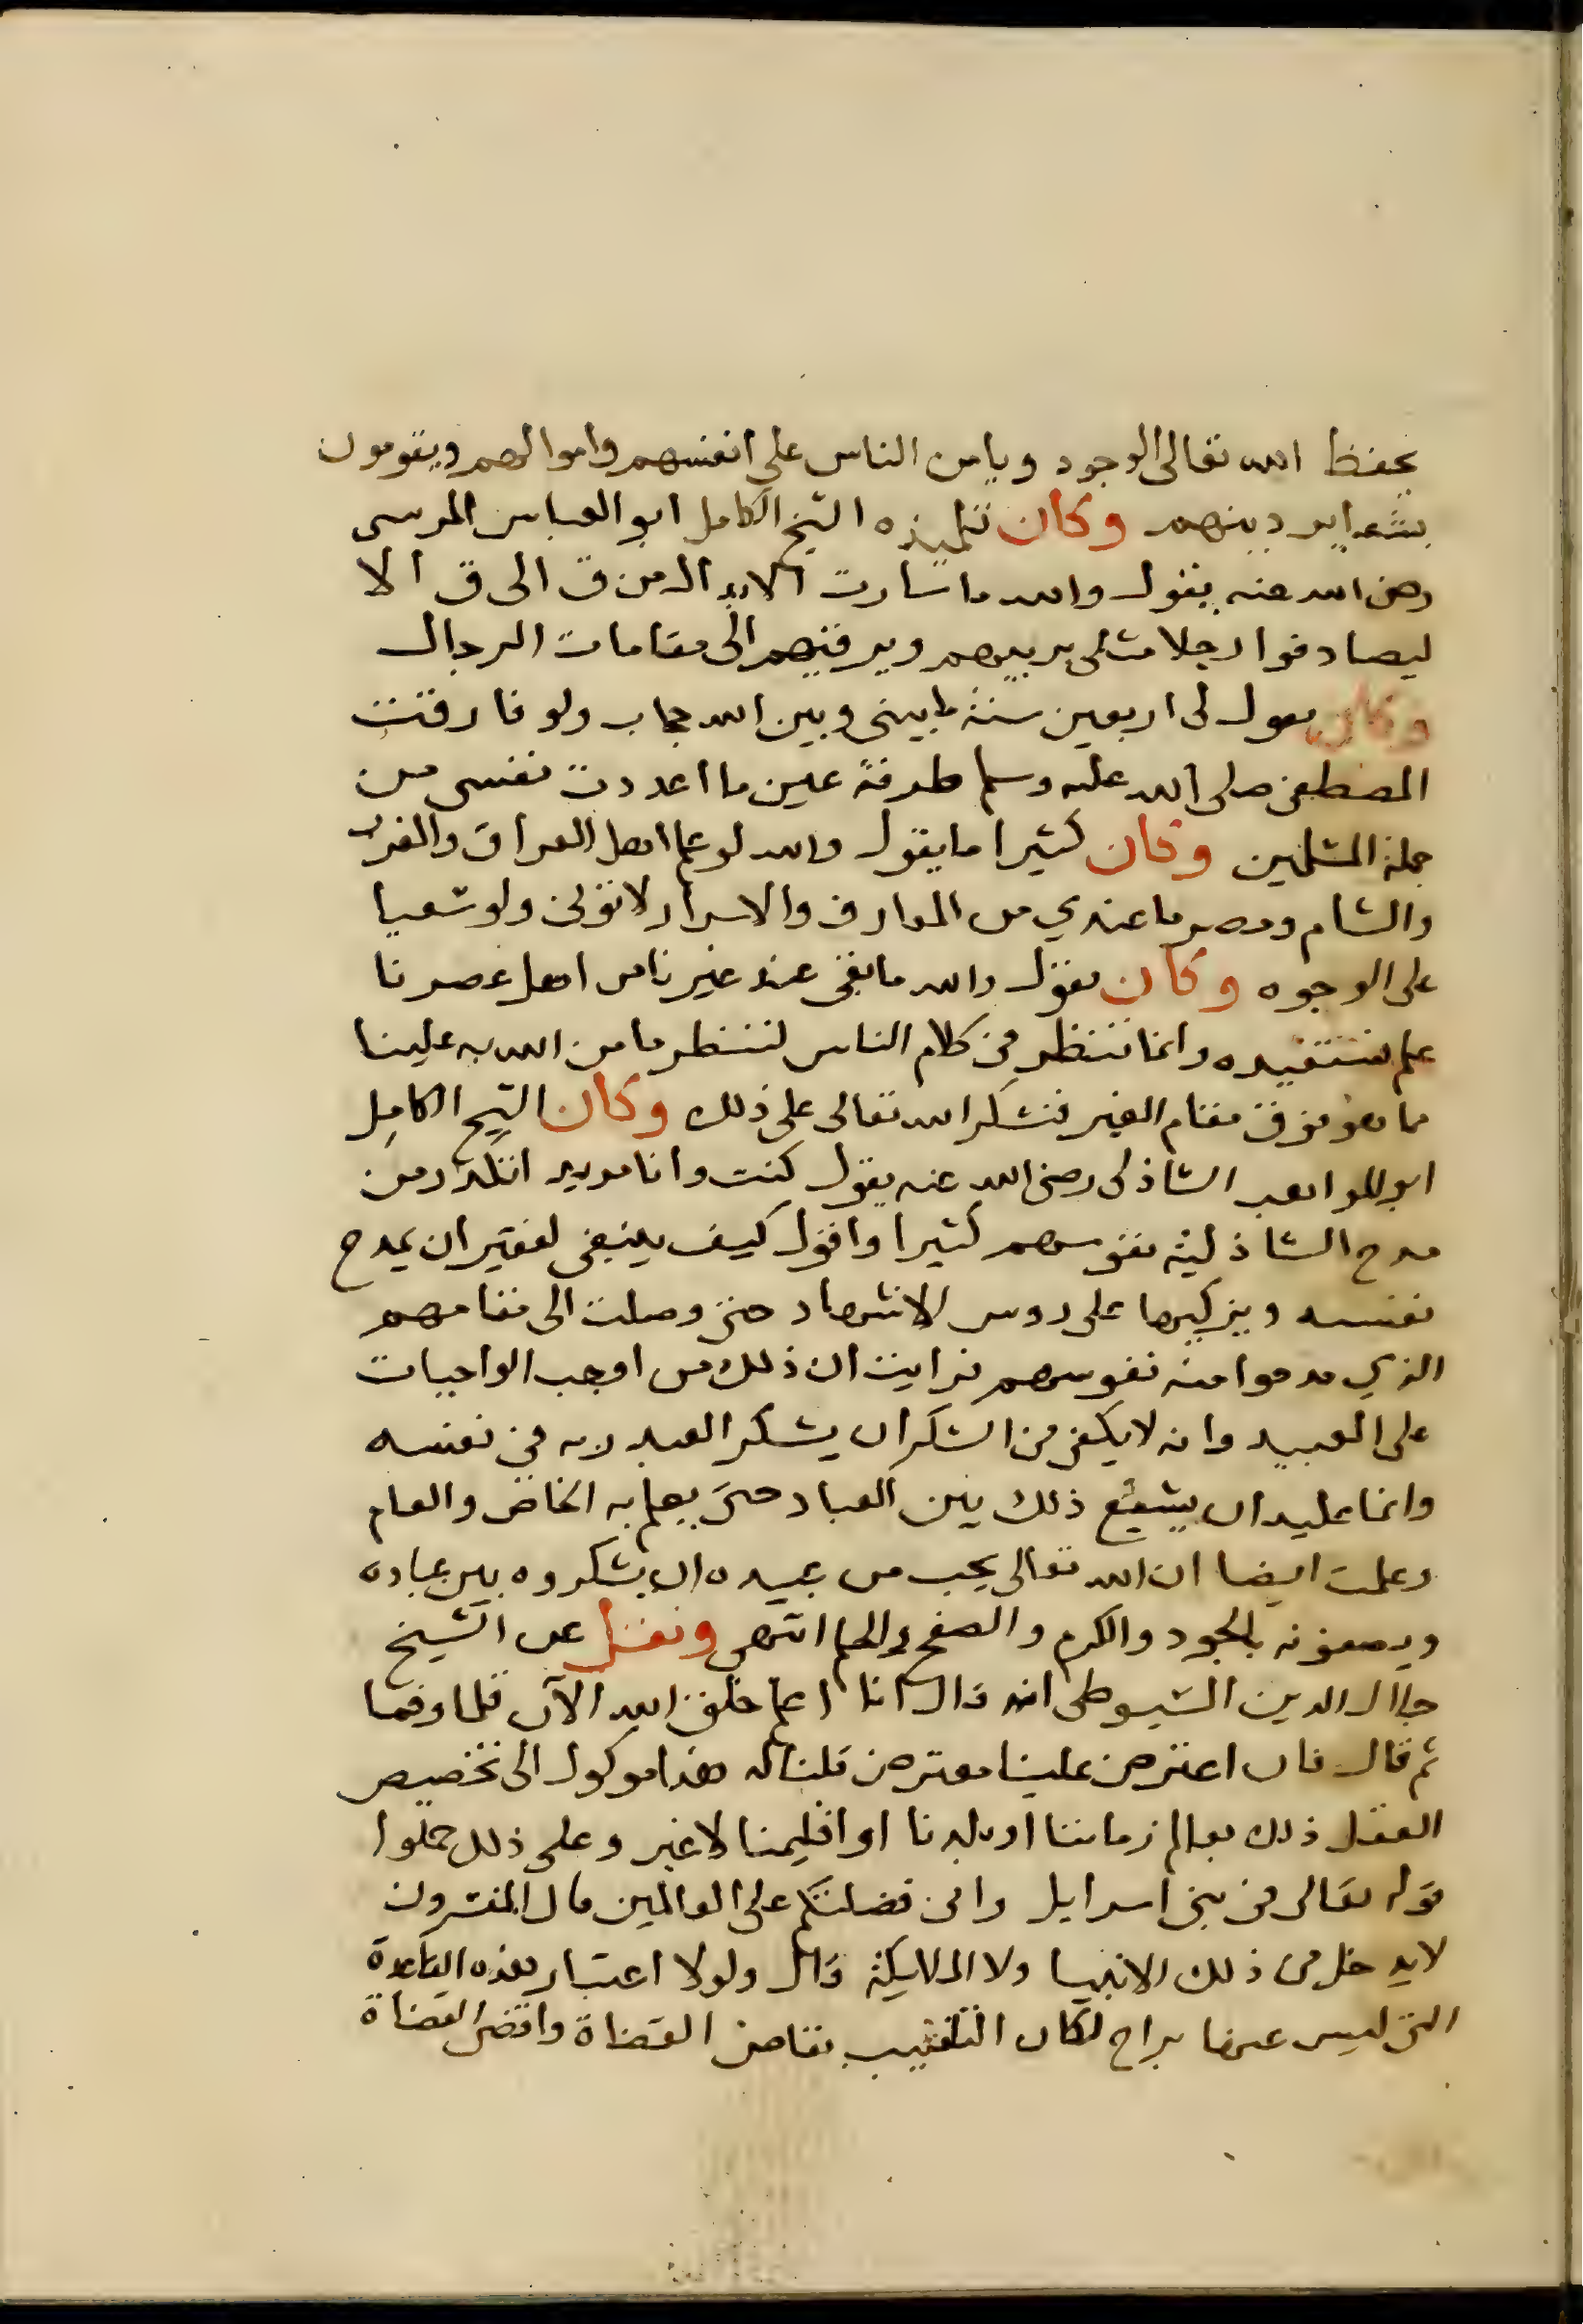 يحفظ الله تعالى الوجود ويامن الناس على انفسهم واموالهم ويقومون
بشعاير دينهم وكان تلميذه الشيخ الكامل ابو العباس المرسي
رضى الله عنه يقول والله ما سارت الابدال من ق الى ق الا
ليصادفوا رجلا مثلى يربيهم ويرقيهم الى مقامات الرجال
وكان يقول لى اربعين سنة ما بينى وبين الله حجاب ولو فارقت
المصطفى صلى الله عليه وسلم طرفة عين ما اعددت نفسى من
جملة المسلمين وكان كثيرا ما يقول والله لو علم اهل العراق والغرب
والشام ومصر ما عندي من المعارف والاسرار لاتونى ولو سعيا
على الوجوه وكان يقول والله ما بقى عند غيرنا من اهل عصرنا
علم نستفيده وانما ننظر فى كلام الناس لننظر ما من الله به علينا
مما هو فوق مقام الغير فنشكر الله تعالى على ذلك وكان الشيخ الكامل
ابو المواهب الشاذلى رضى الله عنه يقول كنت وانا مريد اتكدر من
مدح الشاذلية نفوسهم كثيرا واقول كيف ينبغى لفقير ان يمدح
نفسه ويزكيها على روس الاشهاد حتى وصلت الى مقامهم
الذي مدحوا منه نفوسهم فرايت ان ذلك من اوجب الواجبات
على العبيد وانه لا يكفى من الشكر ان يشكر العبد ربه فى نفسه
وانما عليه ان يشيع ذلك بين العباد حتى يعلم به الخاص والعام
وعلمت ايضا ان الله تعالى يحب من عبيده ان يشكروه بين عباده
ويصفونه بالجود والكرم والصفح والحلم انتهى ونقل عن الشيخ
جلال الدين السيوطى انه قال انا اعلم خلق الله الآن قلما وفما
ثم قال فان اعترض علينا معترض قلنا له هذا موكول الى تخصيص
العقل ذلك بعالم زماننا او بلدنا او اقليمنا لا غير وعلى ذلك حملوا
قوله تعالى فى بنى اسرايل وانى فضلتكم على العالمين قال المفسرون
لا يدخل فى ذلك الانبيا ولا الملايكة قال ولولا اعتبار هذه القاعدة
التى ليس عنها براح لكان التلقيب بقاضى القضاة واقضى القضاة